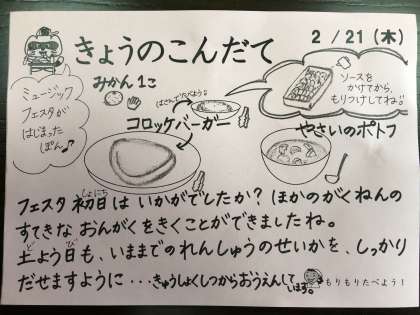 きょうのこんだて
2/21(木)
みかん1こ
ミュージック
フェスタが
はじまった
ぽん♪
はさんでたべよう!
ソースを
かけてから、
もりつけしてね!!
コロッケバーガー
やさいのポトフ
フェスタ初日はいかがでしたか?ほかのがくねんの
しょにち
すてきなおんがくをきくことができましたね。
土よう日も、いままでのれんしゅうのせいかを、しっかり
ど び
だせますように・・・きゅうしょくしつからおうえんして
います。
もりもりたべよう!